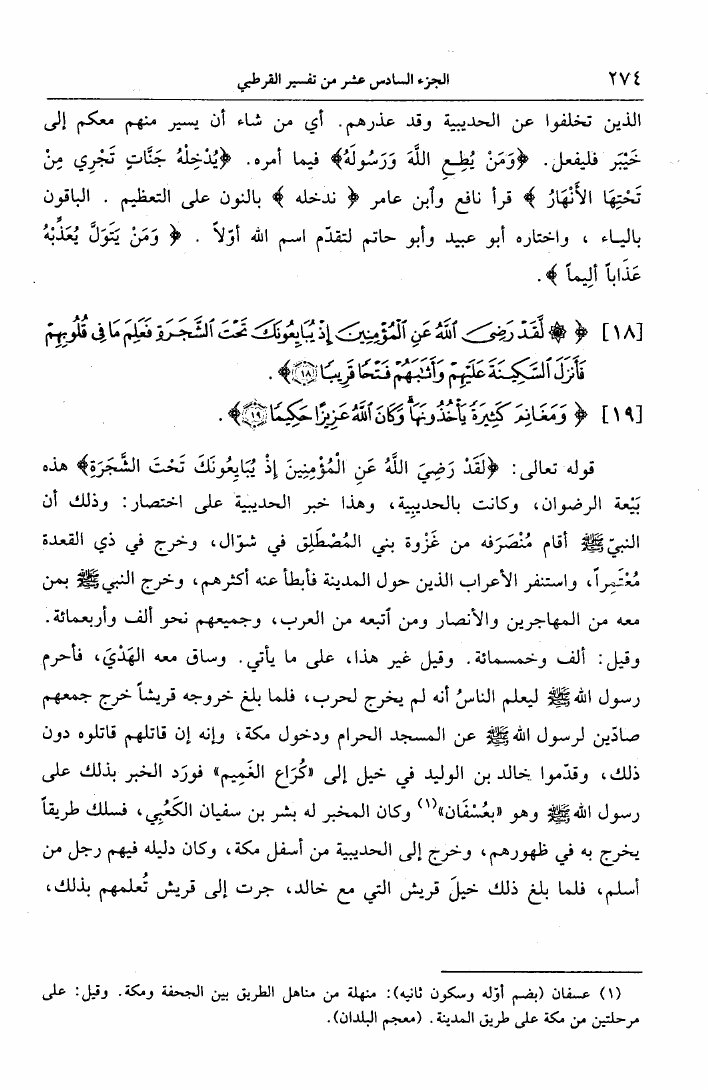 ٢٧٤ الجزء السادس عشر من تفسير القرطبي
الذين تخلفوا عن الحديبية وقد عذرهم. أي من شاء أن يسير منهم معكم إلى
خَيْبَر فليفعل. ﴿وَمَنْ يُطِعِ اللَّهَ وَرَسُولَهُ﴾ فيما أمره. ﴿يُدْخِلْهُ جَنَّاتٍ تَجْرِي مِنْ
تَحْتِهَا الأَنْهَارُ ﴾ قرأ نافع وٱبن عامر ﴿ ندخله ﴾ بالنون على التعظيم . الباقون
بالياء ، واختاره أبو عبيد وأبو حاتم لتقدّم اسم الله أوّلاً . ﴿ وَمَنْ يَتَوَلَّ يُعَذِّبْهُ
عَذَاباً أَلِيماً ﴾ .
[١٨] ﴿ ۞ لَّقَدْ رَضِيَ ٱللَّهُ عَنِ ٱلْمُؤْمِنِينَ إِذْ يُبَايِعُونَكَ تَحْتَ ٱلشَّجَرَةِ فَعَلِمَ مَا فِى قُلُوبِهِمْ
فَأَنزَلَ ٱلسَّكِينَةَ عَلَيْهِمْ وَأَثَٰبَهُمْ فَتْحًا قَرِيبًا ١٨﴾ .
[١٩] ﴿ وَمَغَانِمَ كَثِيرَةً يَأْخُذُونَهَا وَكَانَ ٱللَّهُ عَزِيزًا حَكِيمًا ١٩﴾ .
قوله تعالى: ﴿لَقَدْ رَضِيَ اللَّهُ عَنِ الْمُؤْمِنِينَ إِذْ يُبَايِعُونَكَ تَحْتَ الشَّجَرَةِ﴾ هذه
بَيْعة الرضوان، وكانت بالحديبية، وهذا خبر الحديبية على اختصار: وذلك أن
النبيّ ﷺ أقام مُنْصَرَفه من غَزْوة بني المُصْطَلِق في شوّال، وخرج في ذي القعدة
مُعْتَمِراً، واستنفر الأعراب الذين حول المدينة فأبطأ عنه أكثرهم، وخرج النبي ﷺ بمن
معه من المهاجرين والأنصار ومن ٱتبعه من العرب، وجميعهم نحو ألف وأربعمائة.
وقيل: ألف وخمسمائة. وقيل غير هذا، على ما يأتي. وساق معه الهَدْيَ، فأحرم
رسول الله ﷺ ليعلم الناسُ أنه لم يخرج لحرب، فلما بلغ خروجه قريشاً خرج جمعهم
صادّين لرسول الله ﷺ عن المسجد الحرام ودخول مكة، وإنه إن قاتلهم قاتلوه دون
ذلك، وقدّموا خالد بن الوليد في خيل إلى «كُرَاع الغَمِيم» فورَد الخبر بذلك على
رسول الله ﷺ وهو «بعُسْفَان»(١) وكان المخبر له بشر بن سفيان الكَعْبِي، فسلك طريقاً
يخرج به في ظهورهم، وخرج إلى الحديبية من أسفل مكة، وكان دليله فيهم رجل من
أسلم، فلما بلغ ذلك خيلَ قريش التي مع خالد، جرت إلى قريش تُعلمهم بذلك،
(١) عسفان (بضم أوّله وسكون ثانيه): منهلة من مناهل الطريق بين الجحفة ومكة. وقيل: على
مرحلتين من مكة على طريق المدينة. (معجم البلدان).